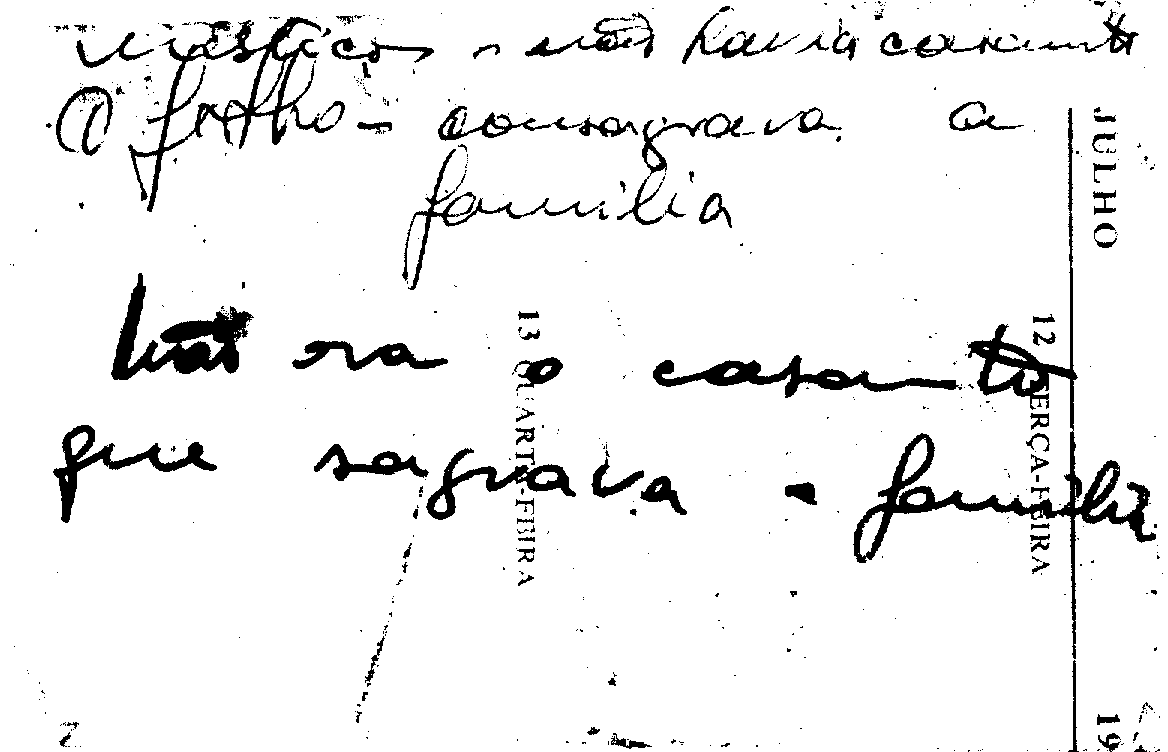 mestiços - não havia casamento
O filho - consagrava a
família
Não era o casamento
que sagrava a família
JULHO
12 TERÇA-FEIRA
13 QUARTA-FEIRA
19